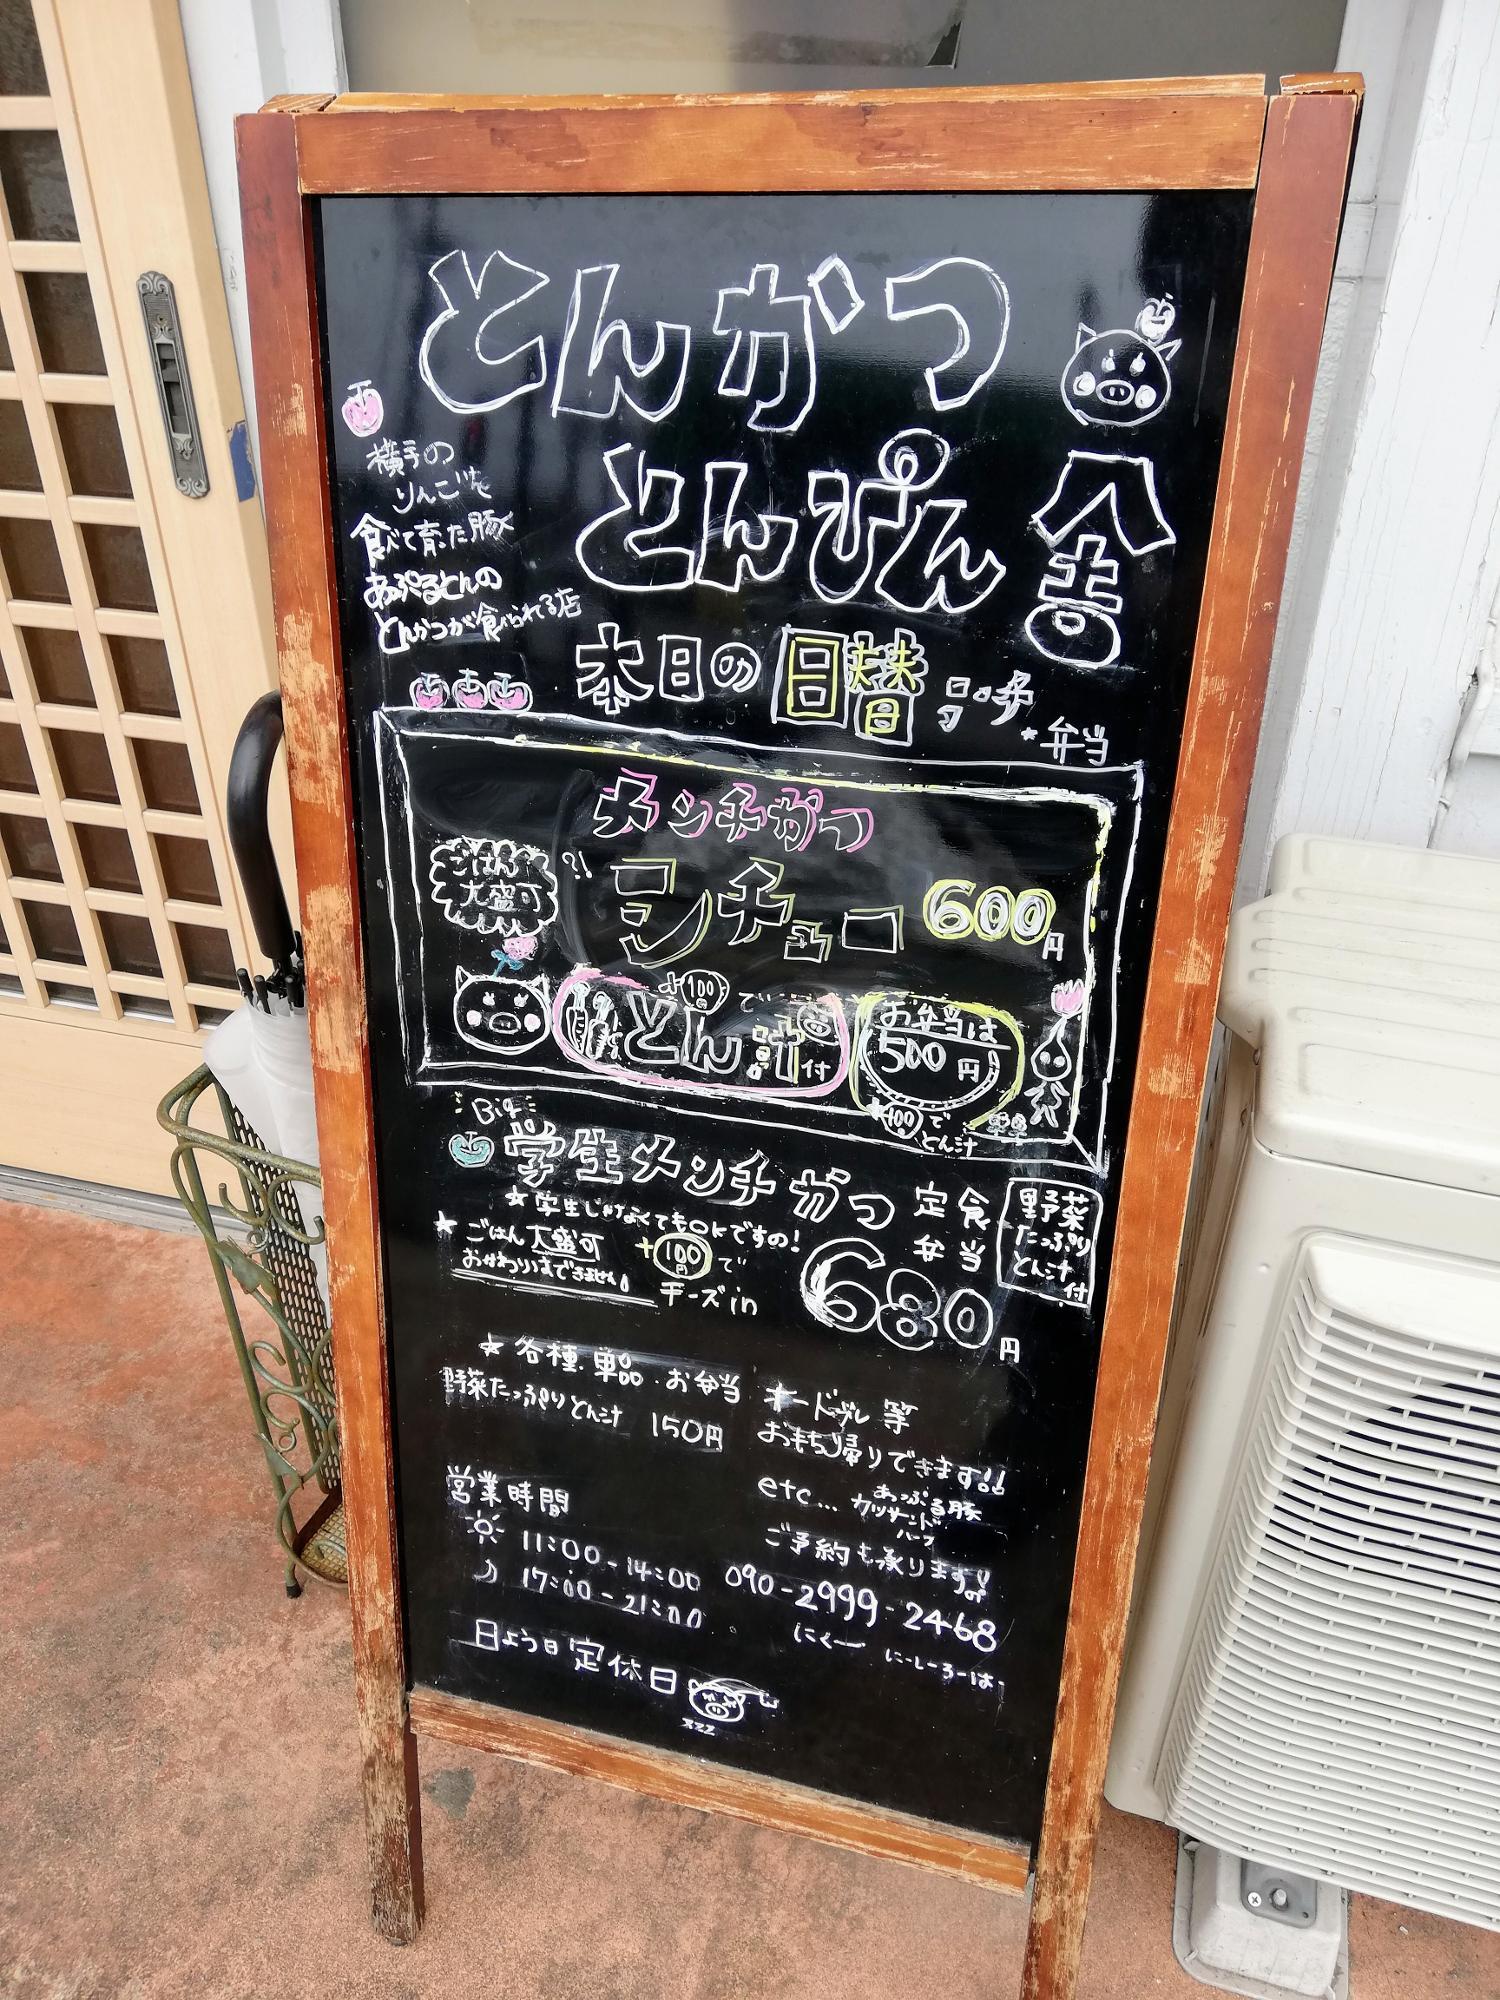 とんかつ
とんぴん舎
横手の
りんごを
食べて育った豚
あっぷるとんの
とんかつが食べられる店
本日の日替ランチ
★弁当
メンチかつ
シチュー 600円
ごはん
大盛可
?!
+100円で
とん汁付
お弁当は
500円
+100で
とん汁
Big
学生メンチかつ 定食
弁当
★学生じゃなくてもOKですの!
★ごはん大盛可
おかわりはできません。
+100円で
チーズin
680円
野菜
たっぷり
とん汁
付
★各種.単品.お弁当
野菜たっぷりとん汁 150円
オードブル等
おもち帰りできます!!
etc...
あっぷる豚
カツサンド
ハーフ
ご予約も承ります!
090-2999-2468
にくー にーしーろーは
営業時間
11:00-14:00
17:00-21:00
日よう日定休日
zzz